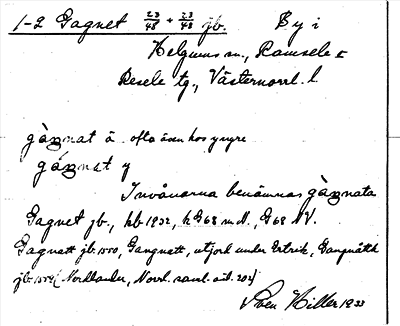 1-2 Gagnet 23/48 + 23/48 jb. By i
Helgums sn., Ramsele o
Resele tg., Västernorrl. l.
gàŋnat ä. ofta även hos yngre
gáŋnat y
Invånarna benämnas gàŋnata
Gagnet jb., kb 1932, hG68 m N, G68 NV.
Gagnatt jb. 1550, Gangnatt, utjord under Ertrik, Gangnätth
jb. (Nordlander, Norrl. saml. sid. 204)
Sven Hiller 1933